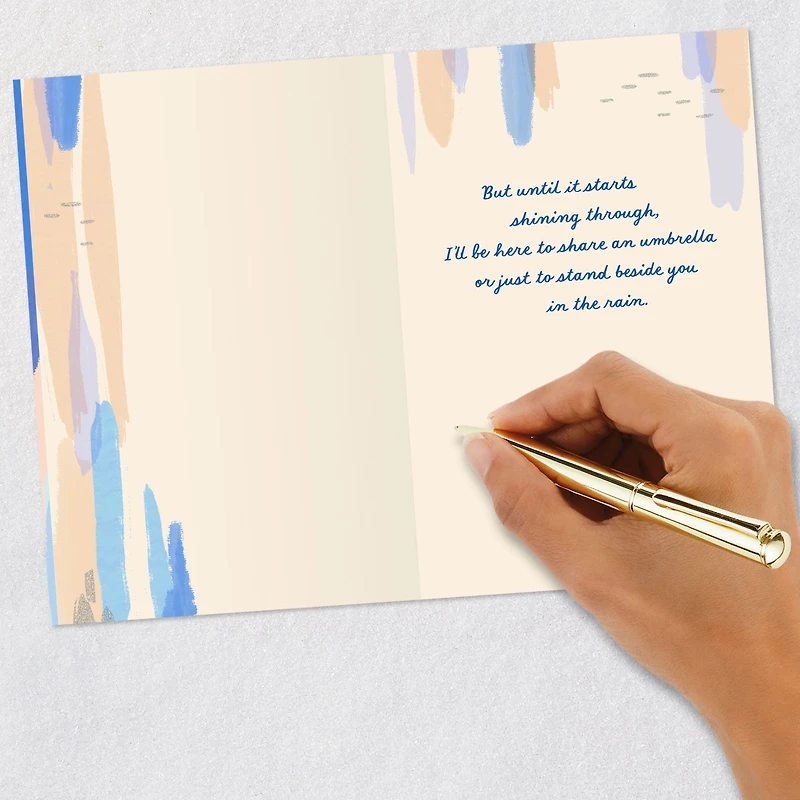 But until it starts
shining through,
I'll be here to share an umbrella
or just to stand beside you
in the rain.